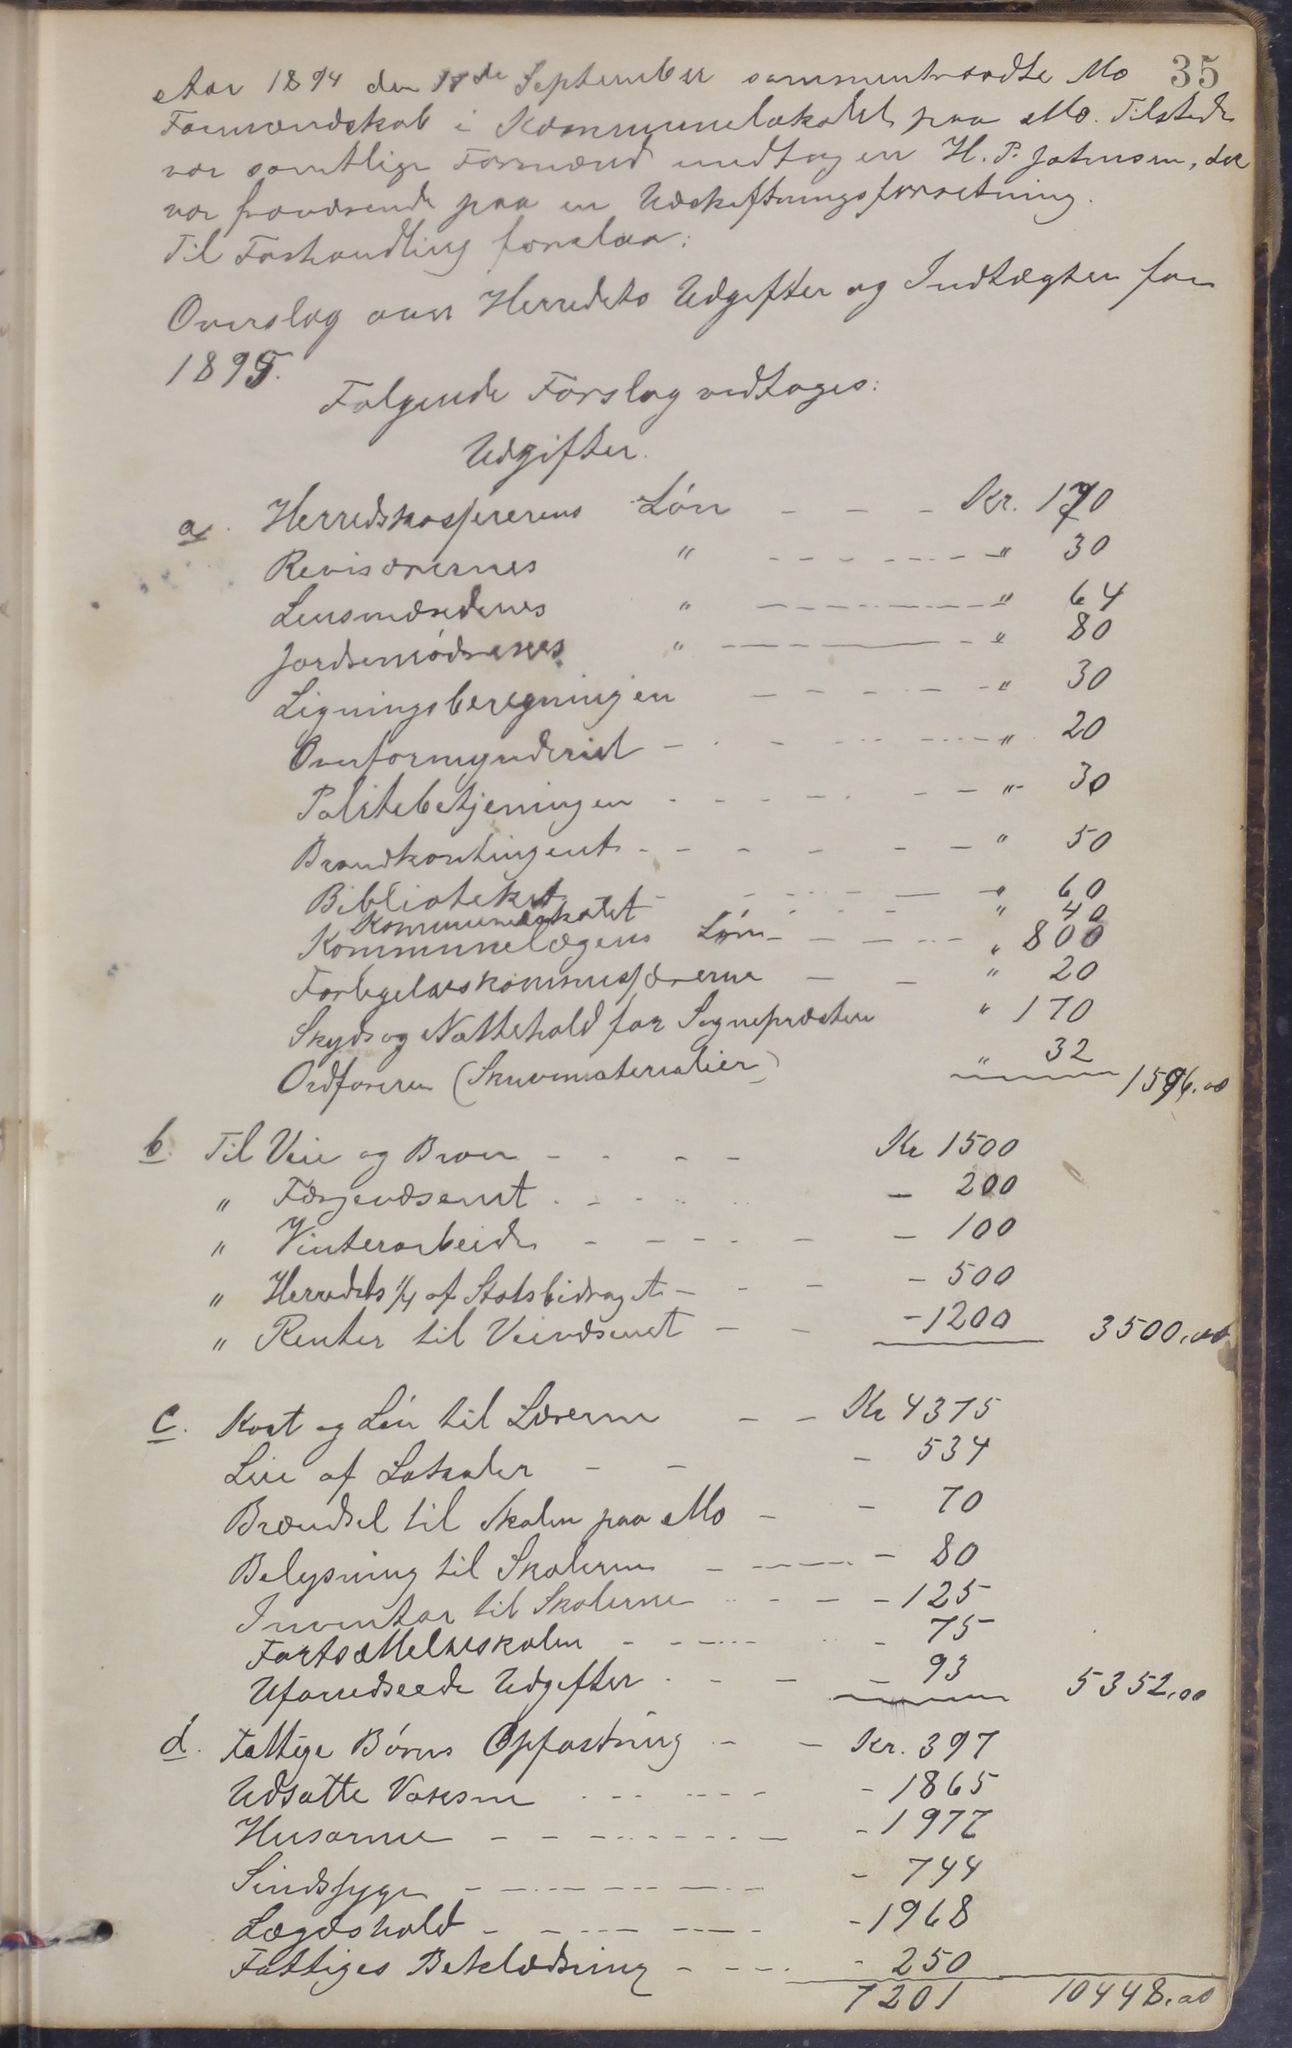 35
Aar 1894 den 18de September sammentraadte Mo
Formændskab i Kommunelokalet paa Mo. Tilstede
var samtlige Formænd undtagen H. P. Johnsen, der
var fraværende paa en Udskiftningsforretning.
Til Forhandling forelaa:
Overslag over Herredets Udgifter og Indtægter for
1895.
Følgende Forslag vedtoges:
Udgifter.
a. Herredskassererens Løn - - - Kr. 170
Revisorernes " - - - " 30
Lensmændenes " - - - " 64
Jordemødrenes " - - - " 80
Ligningsberegningen - - - " 30
Overformynderiet - - - " 20
Politibetjeningen - - - " 30
Brandkontingent - - - " 50
Biblioteket - - - " 60
Kommunelokalet - - - " 40
Kommunelægens Løn - - - " 800
Forligelseskommissærerne - - " 20
Skyds og Nattehold for Sognepræsten " 170
Ordføreren (Skrivematerialier) " 32 1596.00
b. Til Veie og Broer - - - - Kr 1500
" Færgevæsenet - - - - 200
" Vinterarbeide - - - - 100
" Herredets 1/4 af Statsbidraget - - - 500
" Renter til Veivæsenet - - - 1200 3500.00
c. Kost og Løn til Lærerne - - Kr 4375
Leie af Lokaler - - - 534
Brændsel til Skolen paa Mo - - 70
Belysning til Skolerne - - - 80
Inventar til Skolerne - - - 125
Fortsættelsesskolen - - - 75
Uforudseede Udgifter - - - 93 5352.00
d. Fattige Børns Opfostring - - Kr. 397
Udsatte Voksne - - - 1865
Husarme - - - 1977
Sindssyge - - - 744
Lægdshold - - - 1968
Fattiges Beklædning - - - 250
7201 10448.00